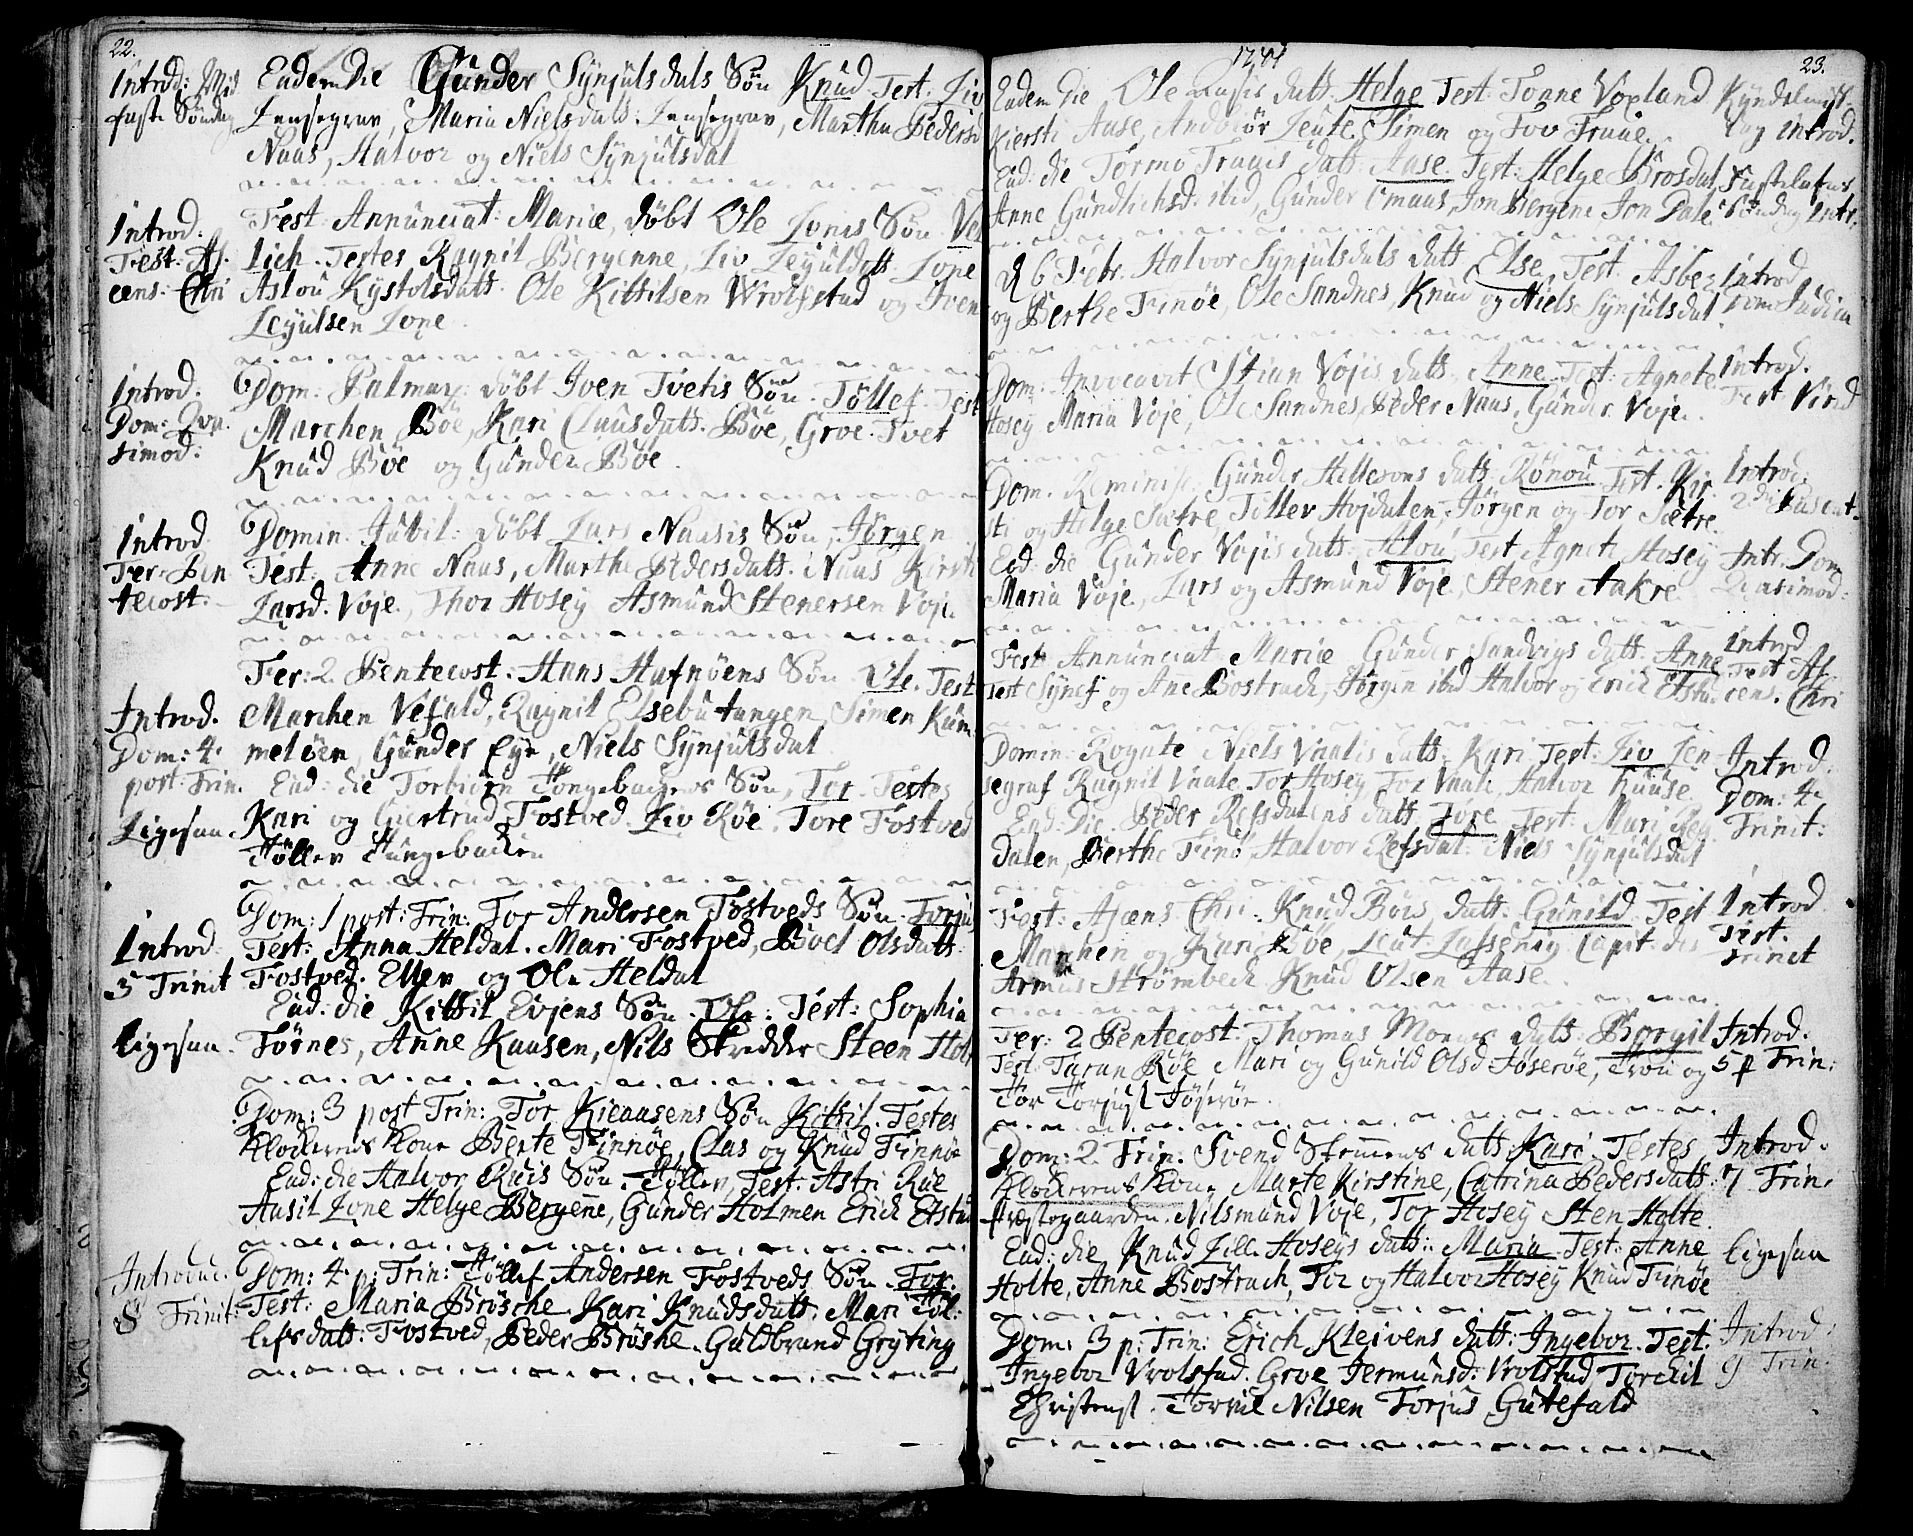 22.
Introd: Mid
faste Søndag
Eadem Die Gunder Synjulsdals Søn Knud Test. Liv
Jensegrav, Maria Nielsdatt: Jensegrav, Martha Peders
Naas, Halvor og Niels Synjulsdal
Introd.
Fest. As.
cens: Chri
Fest: Annunciat: Mariæ, døbt Ole Lones Søn
lich. Testes Ragnil Bergenne, Liv Lejulsdatt. Lone
Aslou Kystolsdatt: Ole Kittilsen Wrolfstad og Iven
Lejulsen Lone.
Introd:
Dom: Qva
simod:
Dom: Palmar: døbt Iven Tvetis Søn. Tøllef. Test
Marchen Bøe, Kari Clausdatt. Bøe, Groe Tvet
Knud Bøe og Gunder Bøe.
Introd
Fer. Pen
tecost.
Domin: Jubil: døbt Lars Naasis Søn, Jørgen
Test: Anne Naas, Marthe Pedersdatt. Naas Kirsti
Larsd. Voje, Thor Hosey Asmund Stenersen Voje
Introd.
Dom: 4.
post: Trin.
Fer: 2. Pentecost: Hans Hafnøens Søn Ole. Test
Marchen Vefald, Ragnil Elsebutangen, Simen Kum
meløen, Gunder Eye, Niels Synjulsdal
Ligesaa.
Ead: die Torbiørn Tongebachens Søn, Tor. Testes
Kari og Giertrud Tostved. Liv Røe. Tore Tostved
Tøllev Tungebacken
Introd
5 Trinit
Dom: 1 post: Trin: Tor Andersen Tostveds Søn. Torju
Test: Anna Heldal. Mari Tostved, Boel Olsdatt:
Tostved. Ellev og Ole Heldal
Ligesaa.
Ead: die Kittil Evjens Søn. Ole: Test: Sophia
Førnes, Anne Kaasen, Nils Skredder Steen Hol
Dom: 3 post Trin: Tor Kieaasens Søn Kittil. Testes
Klockerens Kone Berte Finnøe, Clas og Knud Finnøe
Ead: die Halvor Ruis Søn. Tøllev, Test: Astri Rue
Aasil Lone Helge Bergene, Gunder Holmen Erich Etstu
Introduc.
8 Trinit:
Dom: 4. p: Trin: Tøllef Andersen Tostveds Søn. Tor.
Test: Maria Brøsche Kari Knudsdatt. Mari Tøl:
lefsdatt: Tostved, Peder Brøshe. Guldbrand Gryting
23.
Eadem Die Ole datt. Helge Test: Tonne Voxland
Kiersti Aase, Leute Simen og Tov Traae.
Kyndelmiss
dag introd.
Ead: die Tormo Traais datt: Aase Test: Helge Brosdal
Anne Gundlichsd. ibid, Gunder Omaas, Jon Bergene Jon Dale
Fastelafns
Søndag Intr.
D 6 Febr. Halvor Synjulsdals datt. Else, Test. Asber
og Berthe Finøe, Ole Sandnes, Knud og Niels Synjulsdal
Introd
Dom: Judica
Dom: Invocavit Stian Vojis datt. Anne. Test: Agnete
Hosey Maria Voje, Ole Sandnes, Peder Naas, Gunder Voje.
Introd.
Dom. Reminisc. Gunder Hellesons datt Rønou Test. Kir
sti og Helge Sætre, Tillev Hojdalen, Jørgen og Tor Sætre.
Introd:
2 die Pascat.
Ead: die Gunder Vojis datt: Aslou, Test Agnete Hosey
Maria Voje, Lars og Asmund Voje, Stener Aakre
Intr. Dom
Quasimod:
Fest Annunciat Mariæ Gunder Sandvigs datt. Anne
Test Synef og Ane Bostrach, Jørgen ibid Halvor og Erich Etstu
Introd
Fest As
cens. Chri
Domin: Rogate Niels Vaalis datt. Kari Test: Liv Jen
segraf Ragnil Vaale Tor Hosey Tor Vaale, Halvor Kaase.
Introd.
Dom: 4.
Trinit:
Ead: Die. Peder Refsdalens datt. Tore Test: Mari Refs
dalen, Berthe Finø, Halvor Refsdal. Niels Synjulsdal
Fest: Ascens. Chri: Knud Bøis datt: Gunild Test
Marchen og Kari Bøe, Leut. Capit: des
Armes Strømbech Knud Olsen Aase.
Introd
Fest.
Trinit
Fer: 2 Pentecost: Thomas Moens datt: Borgil
Test Taran Røe Mari og Gunild Olsd Føserøe, Trou og
Tor Torjus Føserøe.
Introd.
5 p Trin:
Dom: 2. Trin: Svend datt: Kari. Testes
Klockerens Kone Marte Kirstine, Catrina Pedersdatt:
Præstegaarden. Nilsmund Voje, Tor Hosey Sten Holte.
Introd.
7 Trin.
Ead: die Knud Lille Hoseys datt: Maria Test: Anne
Holte, Anne Bostrach, Tor og Halvor Hosey Knud Finøe
Ligesaa
Dom: 3 p: Trin: Erich Kleivens datt: Ingebor. Test:
Ingebor Vrolstad. Groe Jermunsd: Vrolstad Torchil
Christensf. Torkil Nilsen Torjus Gutefald
Introd:
9 Trin: